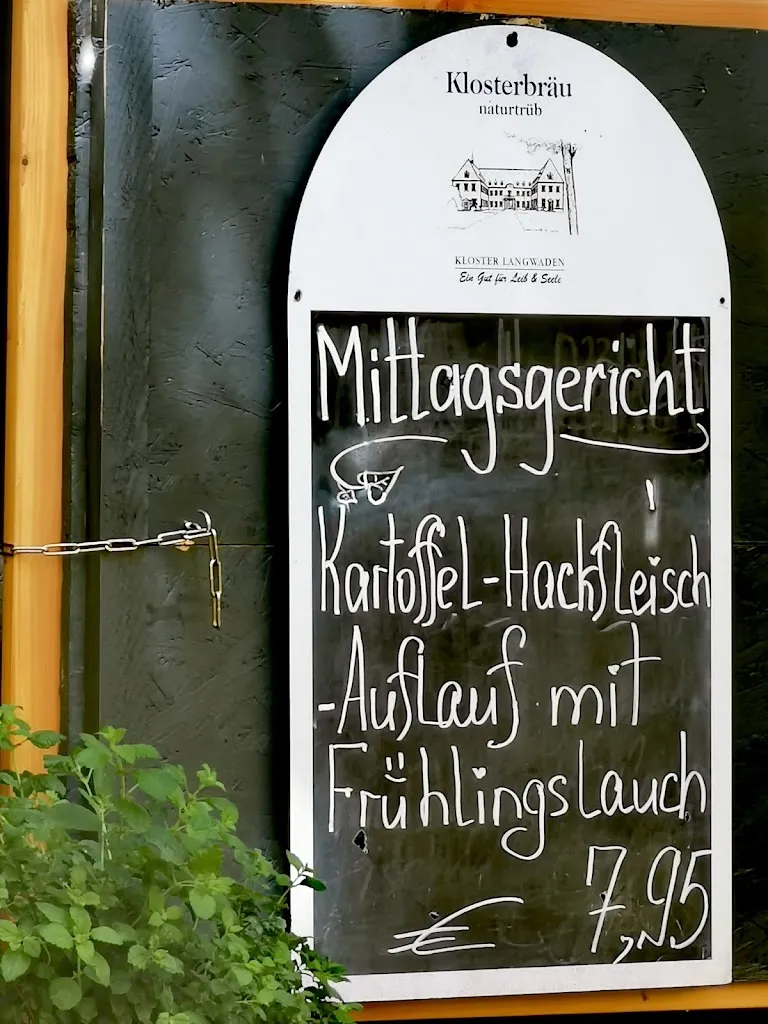 Klosterbräu
naturtrüb
KLOSTER LANGWADEN
Ein Gut für Leib & Seele
Mittagsgericht
Kartoffel-Hackfleisch
-Auflauf mit
Frühlingslauch
€ 7,95